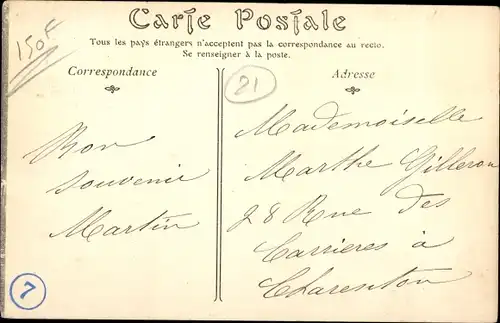 150F
Carte Postale
Tous les pays étrangers n'acceptent pas la correspondance au recto.
Se renseigner à la poste.
Correspondance
Bon
souvenir
Martin
7
21
Adresse
Mademoiselle
Marthe Gilleron
28 Rue des
Carrieres à
Charenton